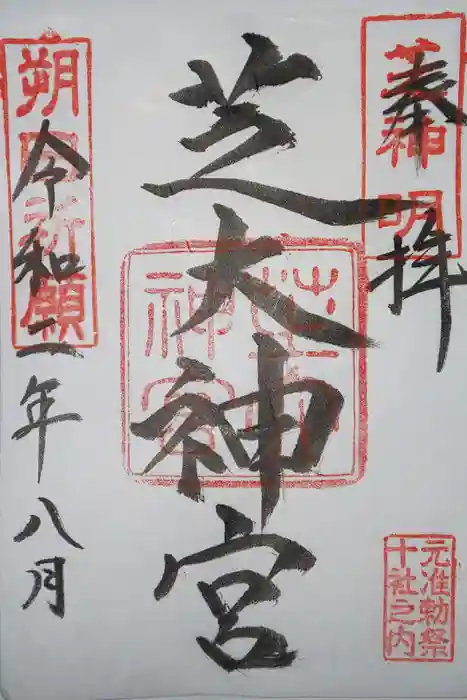 奉拝
芝神明
元准勅祭
十社之内
芝大神宮
令和二年八月
朔日祈願